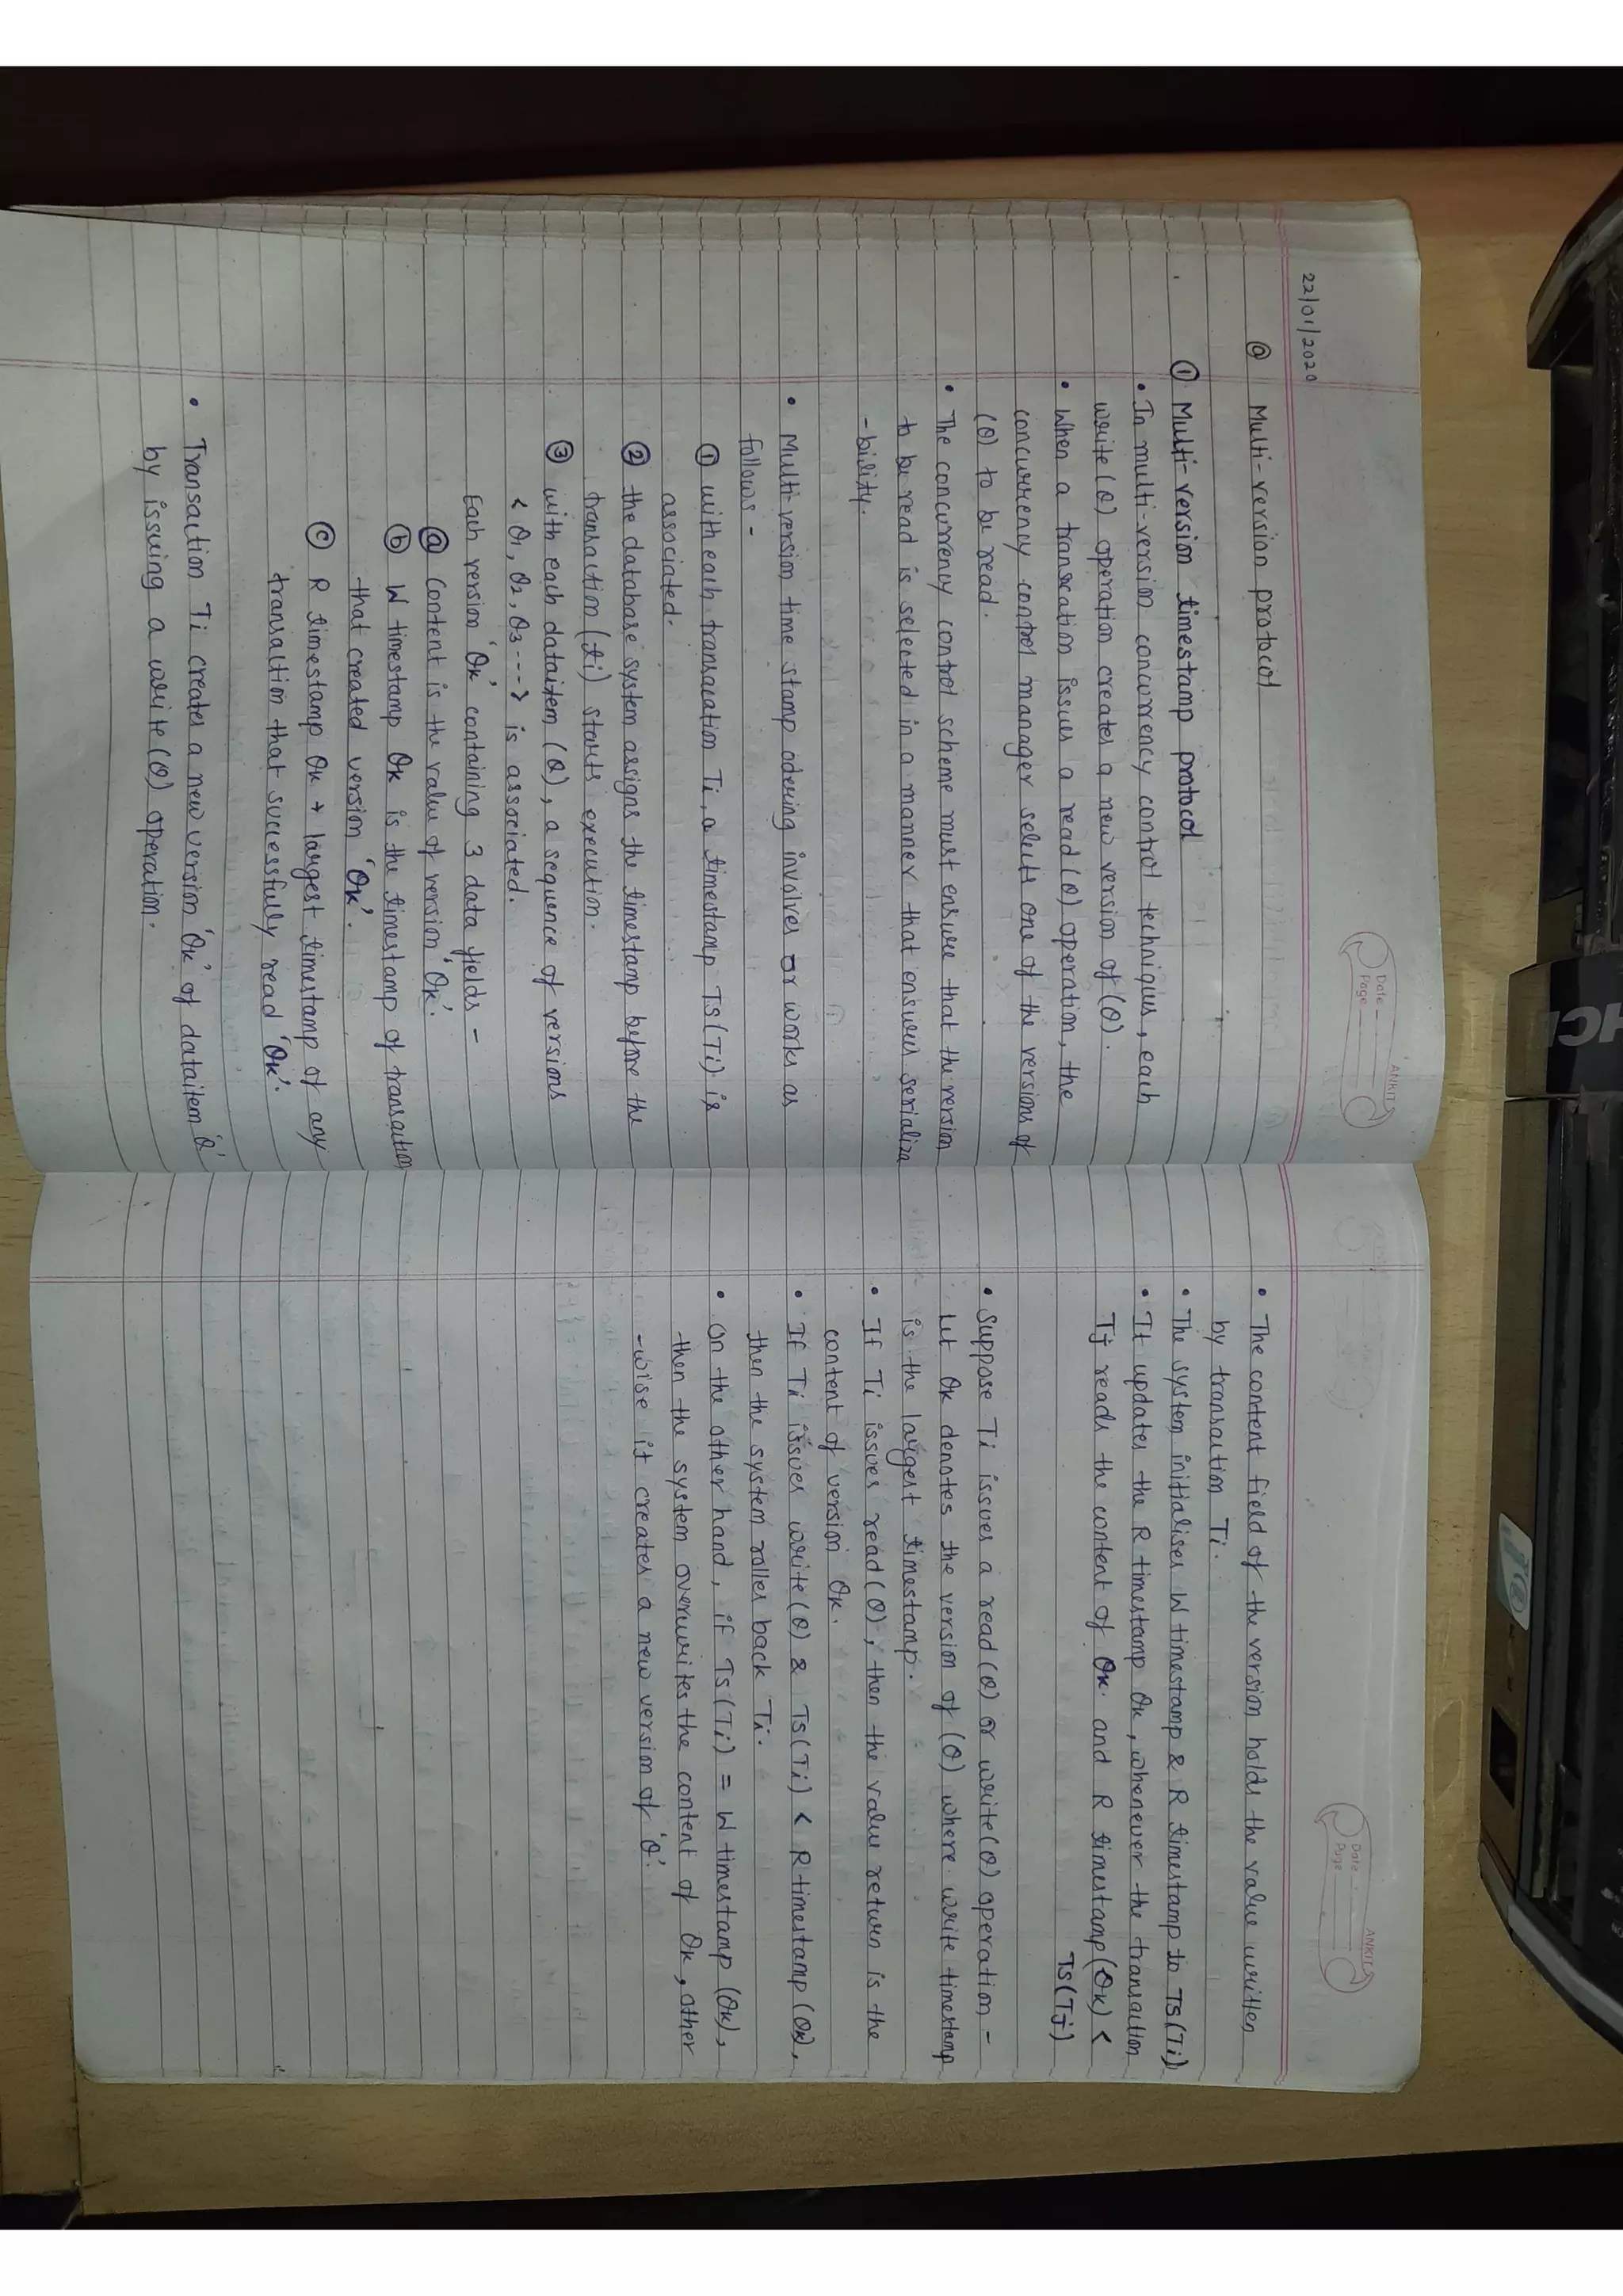 22/01/2020
Date
Page
ANKIT
@ Multi-version protocol
① Multi-version timestamp protocol
• In multi-version concurrency control techniques, each
write (Q) operation creates a new version of (Q).
• When a transcation issues a read (Q) operation, the
concurrency control manager selects one of the versions of
(Q) to be read.
• The concurrency control scheme must ensure that the version
to be read is selected in a manner that ensures serializa
-bility.
• Multi-version time stamp odering involves or works as
follows -
① with each transaction Ti, a timestamp Ts(Ti) is
associated.
② the database system assigns the timestamp before the
transaction (ti) starts execution.
③ with each dataitem (Q), a sequence of versions
< Q1, Q2, Q3 ---> is associated.
Each version 'Qk' containing 3 data fields -
ⓐ Content is the value of version 'Qk'.
ⓑ W timestamp Qk is the timestamp of transaction
that created version 'Qk'.
ⓒ R timestamp Qk → largest timestamp of any
transaction that successfully read 'Qk'.
• Transaction Ti creates a new version 'Qk' of dataitem 'Q'
by issuing a write (Q) operation.
Date
Page
ANKIT
• The content field of the version holds the value written
by transaction Ti.
• The system initialises W timestamp & R timestamp to Ts(Ti)
• It updates the R timestamp Qk, whenever the transaction
Tj reads the content of Qk. and R timestamp (Qk) <
Ts(Tj)
• Suppose Ti issues a read (Q) or write (Q) operation -
Let Qk denotes the version of (Q) where write timestamp
is the largest timestamp.
• If Ti issues read (Q), then the value return is the
content of version Qk.
• If Ti issues write (Q) & Ts(Ti) < R timestamp (Qk),
then the system rolles back Ti.
• On the other hand, if Ts(Ti) = W timestamp (Qk),
then the system overwrites the content of Qk, other
-wise it creates a new version of 'Q'.
HCL